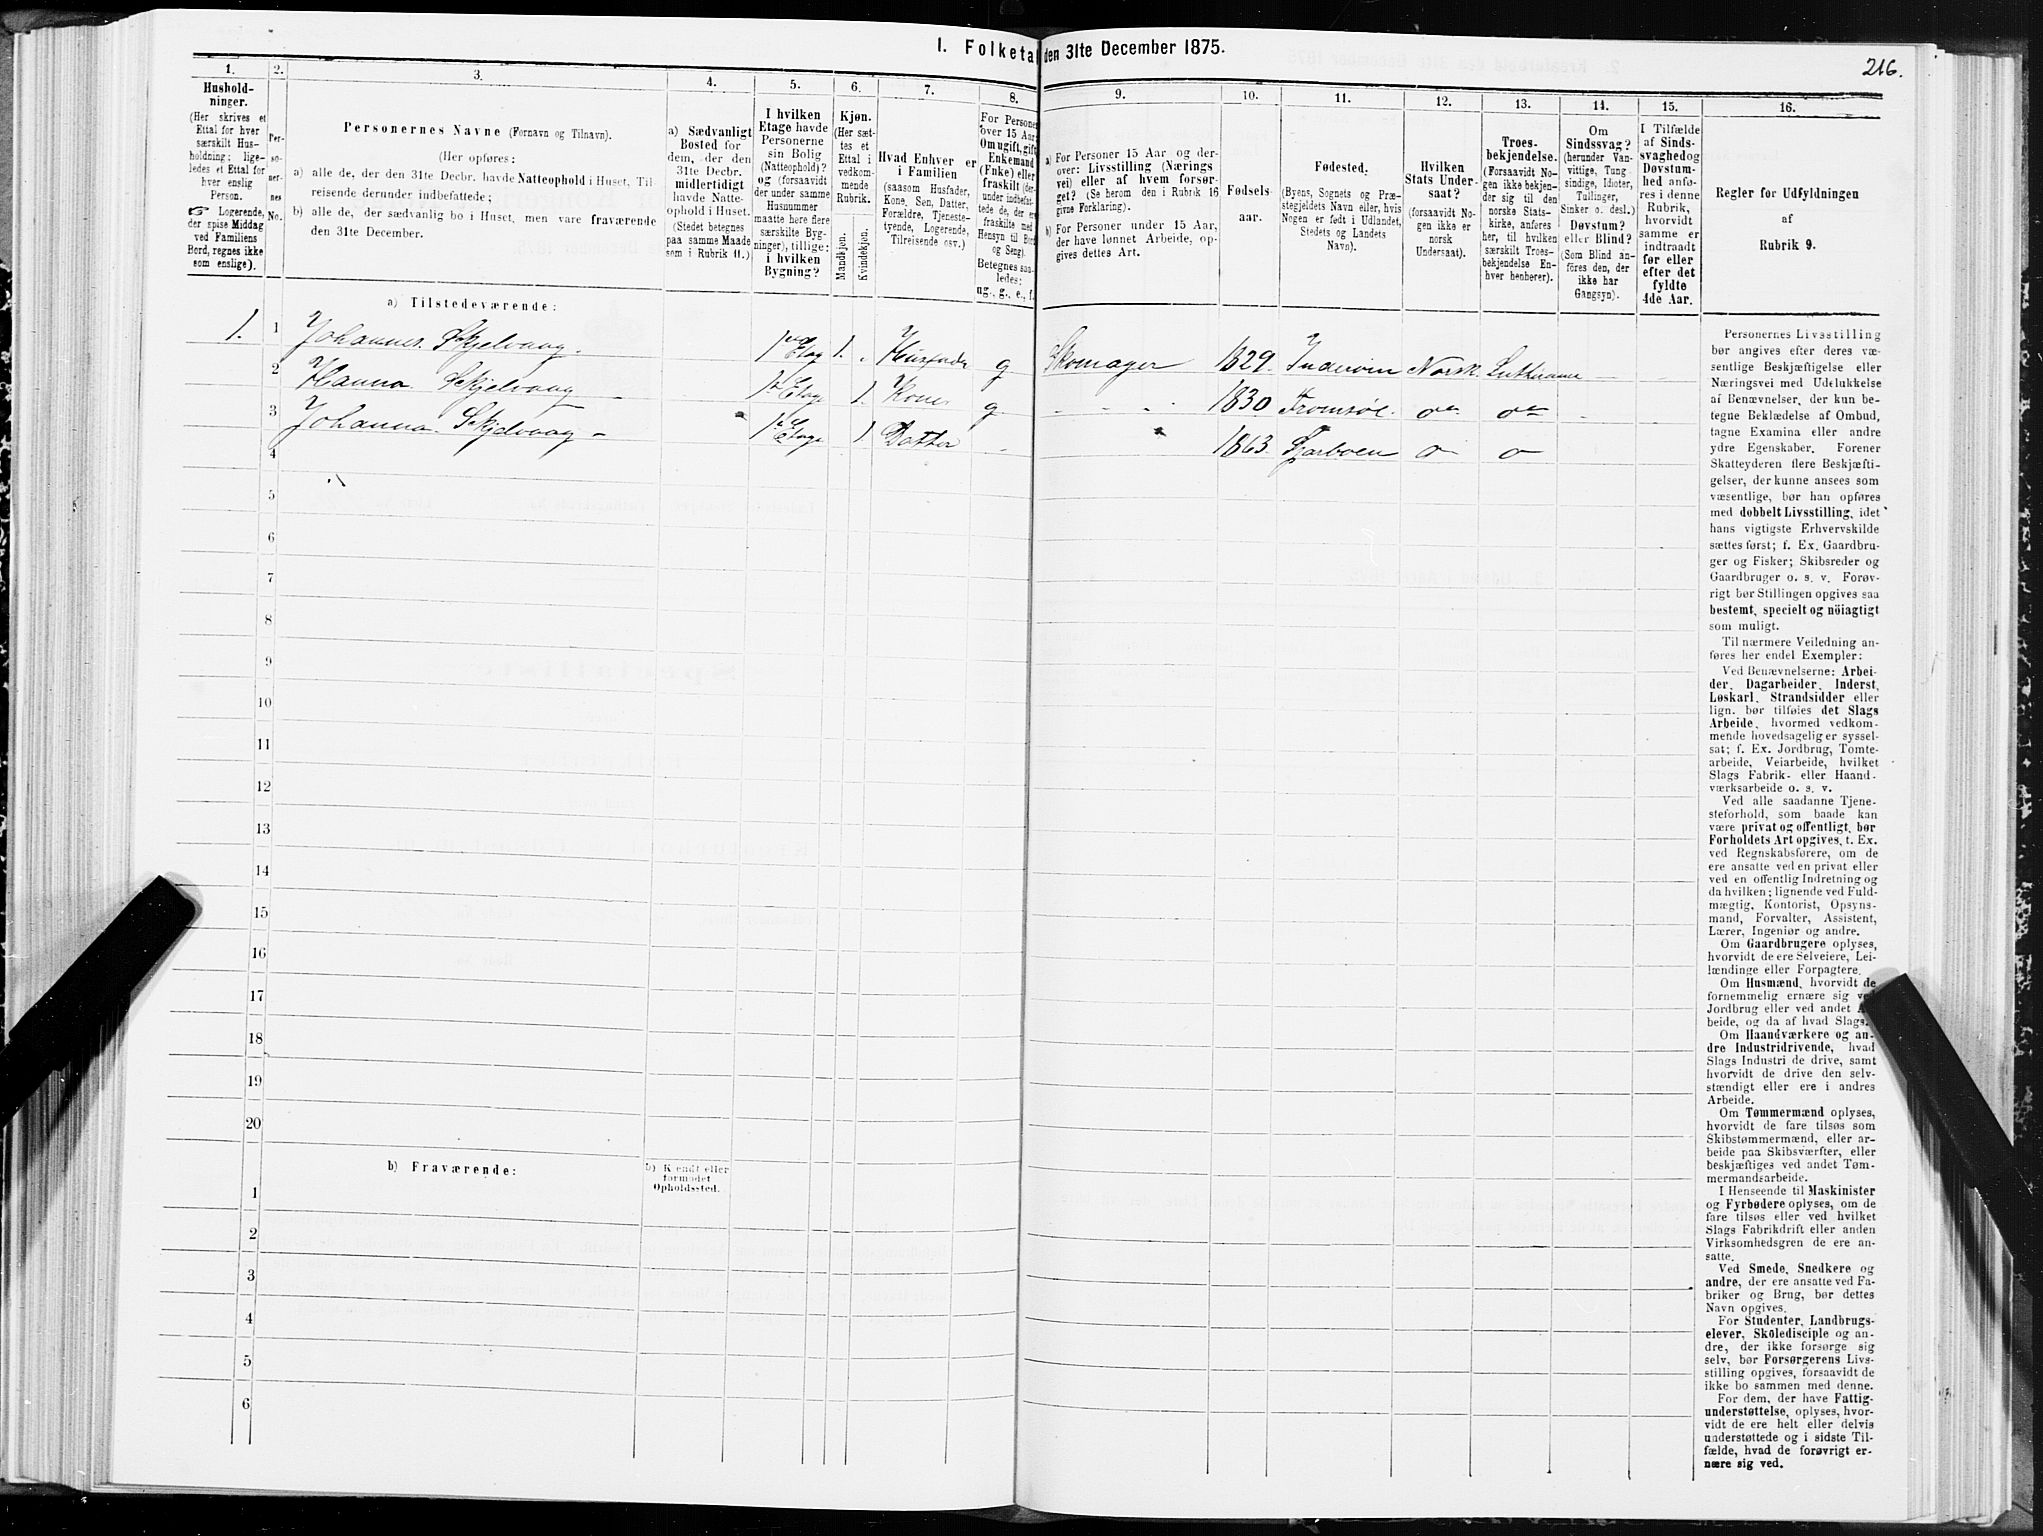 I. Folketal den 31te December 1875.
216.
1.
Hushold-
ninger.
(Her skrives et
Ettal for hver
særskilt Hus-
holdning; lige-
ledes et Ettal for
hver enslig
Person.
☞ Logerende,
der spise Middag
ved Familiens
Bord, regnes ikke
som enslige).
2.
Per-
so-
ner-
nes
No.
3.
Personernes Navne (Fornavn og Tilnavn).
(Her opføres:
a) alle de, der den 31te Decbr. havde Natteophold i Huset, Til-
reisende derunder indbefattede;
b) alle de, der sædvanlig bo i Huset, men vare fraværende
den 31te December.
4.
a) Sædvanligt
Bosted for
dem, der den
31te Decbr.
midlertidigt
havde Natte-
ophold i Huset.
(Stedet betegnes
paa samme Maade
som i Rubrik 11.)
5.
I hvilken
Etage havde
Personerne
sin Bolig
(Natteophold)?
og (forsaavidt
der under samme
Husnummer
maatte høre flere
særskilte Byg-
ninger), tillige:
i hvilken
Bygning?
6.
Kjøn.
(Her sæt-
tes et
Ettal i
vedkom-
mende
Rubrik.
Mandkjøn.
Kvindekjøn.
7.
Hvad Enhver er
i Familien
(saasom Husfader,
Kone, Søn, Datter,
Forældre, Tjeneste-
tyende, Logerende,
Tilreisende osv.)
8.
For Personer
over 15 Aar:
Om ugift, gift,
Enkemand
(Enke) eller
fraskilt (der-
under indbefat-
tede de, der ere
fraskilte med
Hensyn til Bord
og Seng).
Betegnes saa-
ledes:
ug., g., e., f.
9.
a) For Personer 15 Aar og der-
over: Livsstilling (Nærings
vei) eller af hvem forsør-
get? (Se herom den i Rubrik 16
givne Forklaring).
b) For Personer under 15 Aar,
der have lønnet Arbeide, op-
gives dettes Art.
10.
Fødsels-
aar.
11.
Fødested.
(Byens, Sognets og Præ-
stegjeldets Navn eller, hvis
Nogen er født i Udlandet,
Stedets og Landets
Navn).
12.
Hvilken
Stats Under-
saat?
(forsaavidt No-
gen ikke er
norsk
Undersaat).
13.
Troes-
bekjendelse.
(Forsaavidt No-
gen ikke bekjen-
der sig til den
norske Stats-
kirke, anføres
her, til hvilken
særskilt Troes-
bekjendelse En-
hver henhører).
14.
Om
Sindssvag?
(herunder Van-
vittige, Tung
sindige, Idioter,
Tullinger,
Sinker o. desl.)
Døvstum?
eller Blind?
(Som Blind an-
føres den, der
ikke har
Gangsyn).
15.
I Tilfælde
af Sinds-
svaghed og
Døvstum-
hed anfø-
res i denne
Rubrik,
hvorvidt
samme er
indtraadt
før eller
efter det
fyldte
4de Aar.
16.
Regler for Udfyldningen
af
Rubrik 9.
a) Tilstedeværende:
1. 1 Johannes Skjelvaag. 1 Etag 1. Husfader g Skomager 1829. Inderøen Norsk. Lutheraner
2 Hanna Skjelvaag 1. Etage 1. Kone g 1830 Tromsøe. do do
3 Johanna Skjelvaag 1 Etage 1. Datter 1863. do do
4
5
6
7
8
9
10
11
12
13
14
15
16
17
18
19
20
b) Fraværende:
b) Kendt eller
formodet
Opholdssted.
1
2
3
4
5
6
Personernes Livsstilling
bør angives efter deres væ-
sentlige Beskjæftigelse eller
Næringsvei med Udelukkelse
af Benævnelser, der kun be-
tegne Beklædelse af Ombud,
tagne Examina eller andre
ydre Egenskaber. Forener
Skatteyderen flere Beskjæfti-
gelser, der kunne ansees som
væsentlige, bør han opføres
med dobbelt Livsstilling, idet
hans vigtigste Erhvervskilde
sættes først; f. Ex. Gaardbru-
ger og Fisker; Skibsreder og
Gaardbruger o. s. v. Forøv-
rigt bør Stillingen opgives saa
bestemt, specielt og nöiagtigt
som muligt.
Til nærmere Veiledning an-
føres her endel Exempler:
Ved Benævnelserne: Arbei-
der, Dagarbeider, Inderst,
Løskarl, Strandsidder eller
lign. bør tilføies det Slags
Arbeide, hvormed vedkom-
mende hovedsagelig er syssel-
sat; f. Ex. Jordbrug, Tomte-
arbeide, Veiarbeide, hvilket
Slags Fabrik- eller Haand-
værksarbeide o. s. v.
Ved alle saadanne Tjene-
steforhold, som baade kan
være privat og offentligt, bør
Forholdets Art opgives, t. Ex.
ved Regnskabsførere, om de
ere ansatte ved en privat eller
ved en offentlig Indretning og
da hvilken; lignende ved Fuld-
mægtig, Kontorist, Opsyns-
mand, Forvalter, Assistent,
Lærer, Ingeniør og andre.
Om Gaardbrugere oplyses,
hvorvidt de ere Selveiere, Lei-
lændinge eller Forpagtere.
Om Husmænd, hvorvidt de
fornemmelig ernære sig ved
Jordbrug eller ved andet Ar-
beide, og da af hvad Slags.
Om Haandværkere og an-
dre Industridrivende, hvad
Slags Industri de drive, samt
hvorvidt de drive den selv-
stændigt eller ere i andres
Arbeide.
Om Tømmermænd oplyses,
hvorvidt de fare tilsøs som
Skibstømmermænd, eller ar-
beide paa Skibsværfter, eller
beskjæftiges ved andet Tøm-
mermandsarbeide.
I Henseende til Maskinister
og Fyrbødere oplyses, om de
fare tilsøs eller ved hvilket
Slags Fabrikdrift eller anden
Virksomhedsgren de ere an-
satte.
Ved Smede, Snedkere og
andre, der ere ansatte ved Fa-
briker og Brug, bør dettes
Navn opgives.
For Studenter, Landbrugs-
elever, Skoledisciple og an-
dre, der ikke forsørge sig
selv, bør Forsørgerens Livs-
stilling opgives, forsaavidt de
ikke bo sammen med denne.
For dem, der have Fattig-
understøttelse, oplyses, hvor-
vidt de ere helt eller delvis
understøttede og i sidste Til-
fælde, hvad de forøvrigt er-
nære sig ved.